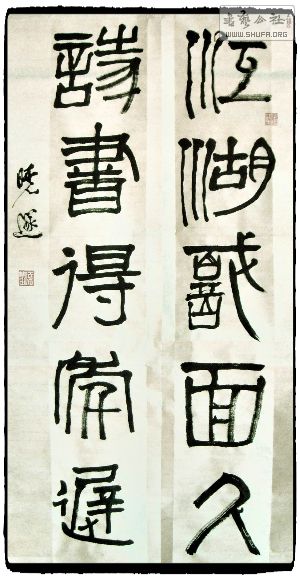 江湖面久
詩書得遲
曉
書法公社
WWW.SHUFA.ORG